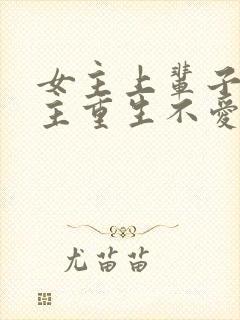 女主上辈子
主重生不爱
尤苗苗